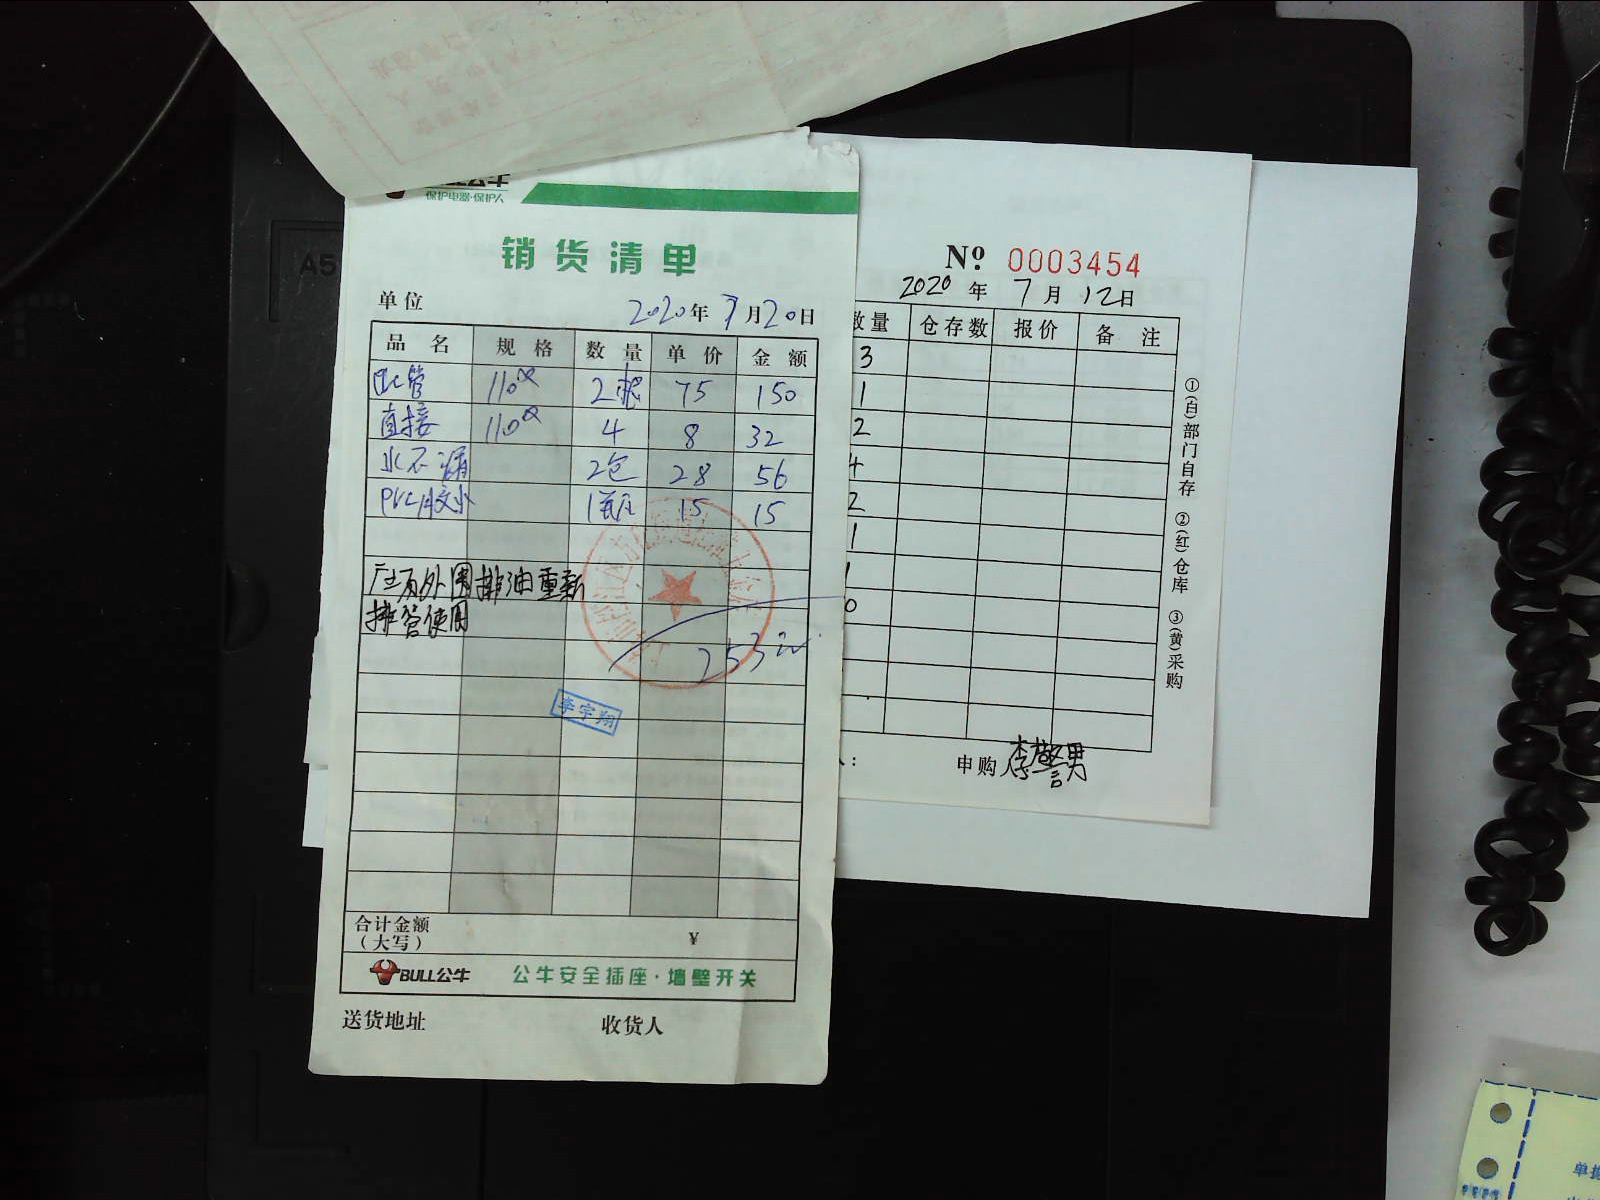 保护电器·保护人
销货清单
单位 2020年7月20日
品名 规格 数量 单价 金额
PVC管 110 2根 75 150
直接 110 4 8 32
水不漏 2包 28 56
PVC胶水 1瓶 15 15
广场外围排油重新
排管使用
253
李宇翔
合计金额
(大写) ¥
BULL公牛 公牛安全插座·墙壁开关
送货地址 收货人
Nº 0003454
2020年7月12日
数量 仓存数 报价 备注
3
1
2
4
2
1
1
0
申购人 李警男
①(白)部门自存 ②(红)仓库 ③(黄)采购
A5